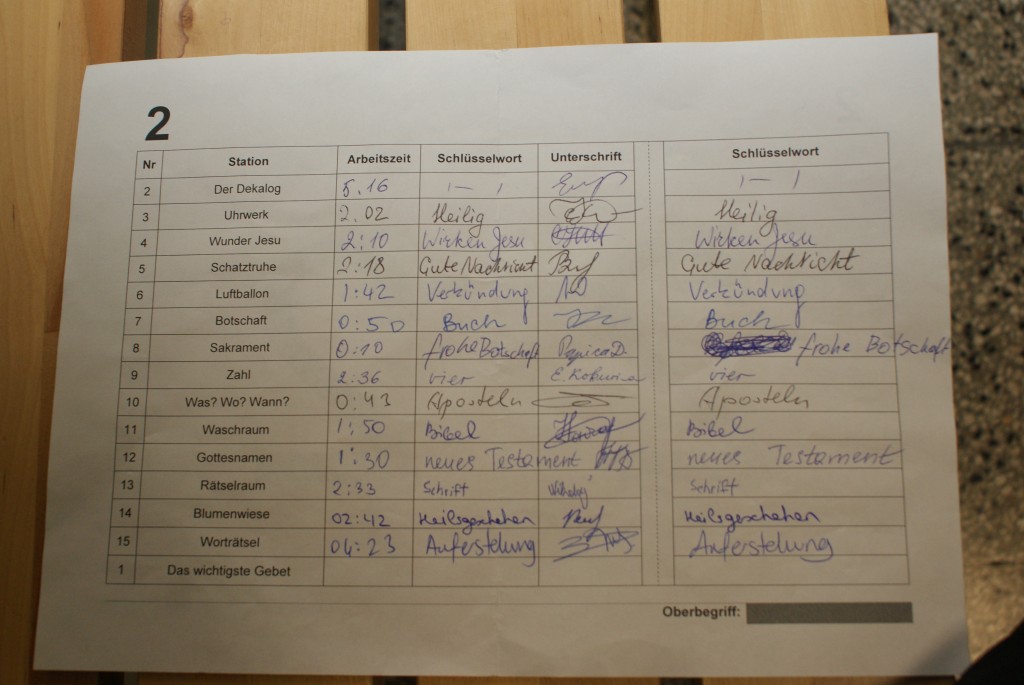 2
Nr Station Arbeitszeit Schlüsselwort Unterschrift Schlüsselwort
2 Der Dekalog 5.16 1 — 1 1 — 1
3 Uhrwerk 2.02 Heilig Heilig
4 Wunder Jesu 2:10 Wirken Jesu Wirken Jesu
5 Schatztruhe 2:18 Gute Nachricht Gute Nachricht
6 Luftballon 1:42 Verkündung Verkündung
7 Botschaft 0:50 Buch Buch
8 Sakrament 0:10 frohe Botschaft frohe Botschaft
9 Zahl 2:36 vier vier
10 Was? Wo? Wann? 0:43 Aposteln Aposteln
11 Waschraum 1:50 Bibel Bibel
12 Gottesnamen 1:30 neues Testament neues Testament
13 Rätselraum 2:33 Schrift Schrift
14 Blumenwiese 02:42 Heilsgeschehen Heilsgeschehen
15 Worträtsel 04:23 Auferstehung Auferstehung
1 Das wichtigste Gebet
Oberbegriff: